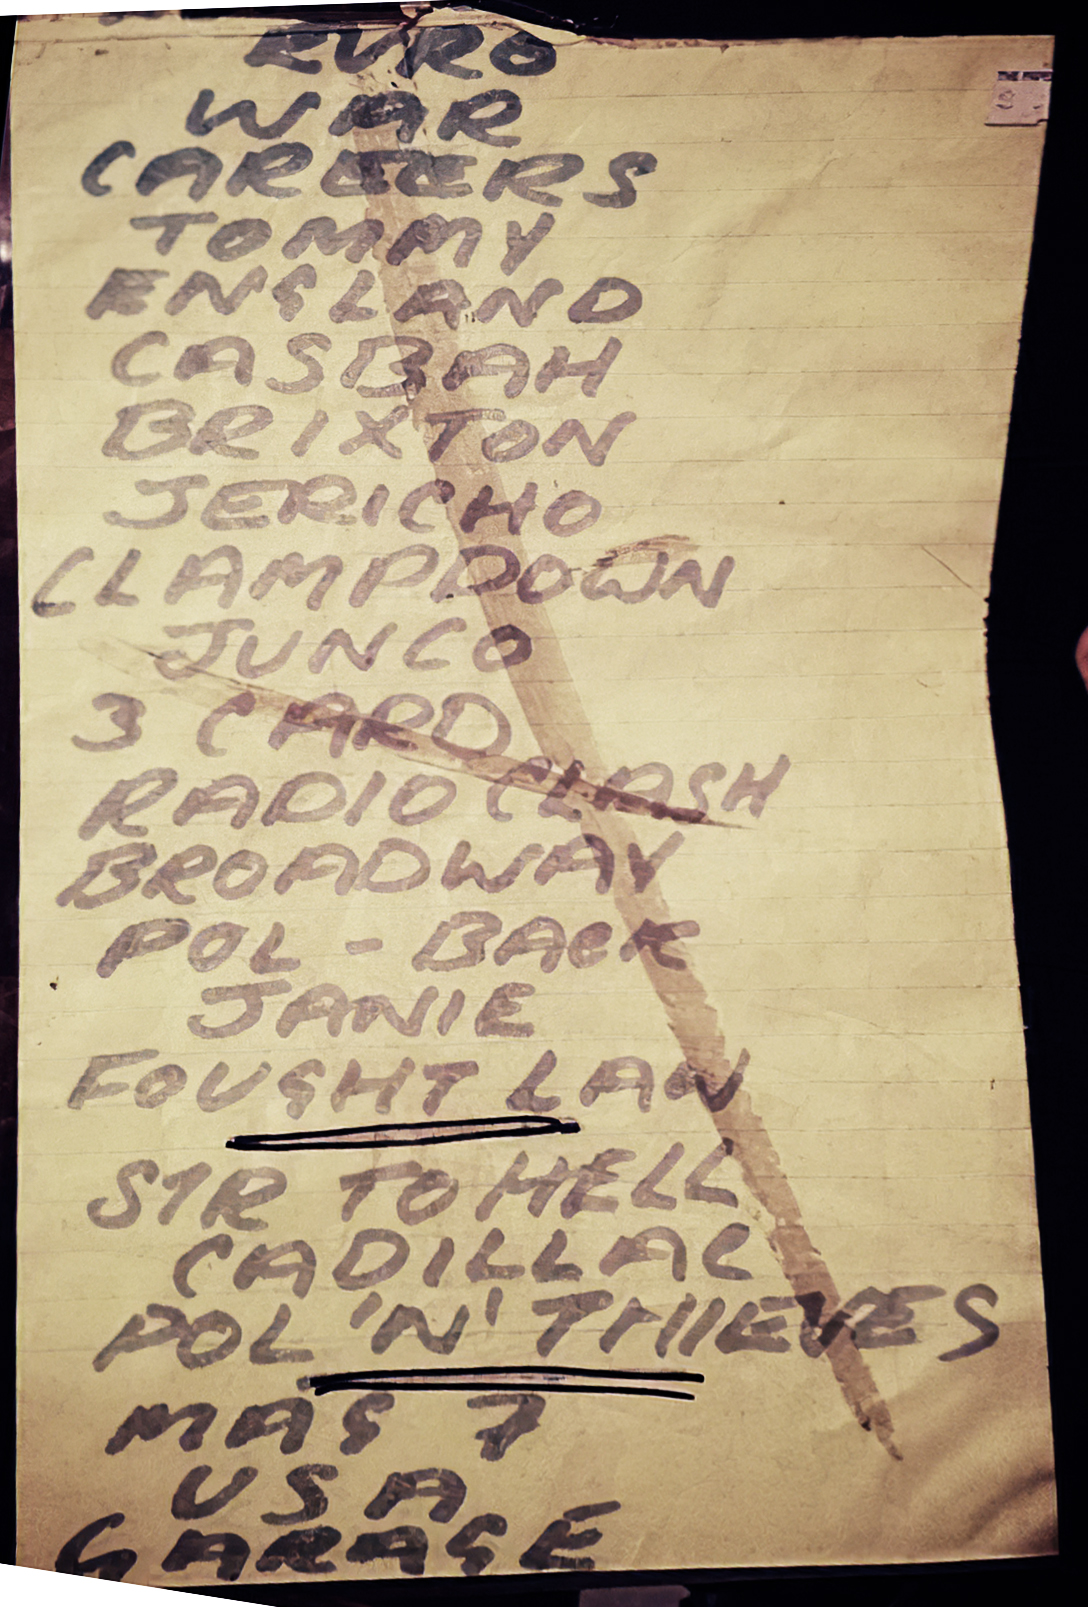 RURO
WAR
CAREERS
TOMMY
ENGLAND
CASBAH
BRIXTON
JERICHO
CLAMPDOWN
JUNCO
3 CARD
RADIO CLASH
BROADWAY
POL - BACK
JANIE
FOUGHT LAW
STR TO HELL
CADILLAC
POL 'N' THIEVES
MAG 7
USA
GARAGE